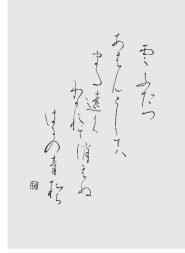 雲ふたつ
あはんとして八
また遠く
わかれて消えぬ
はるの青